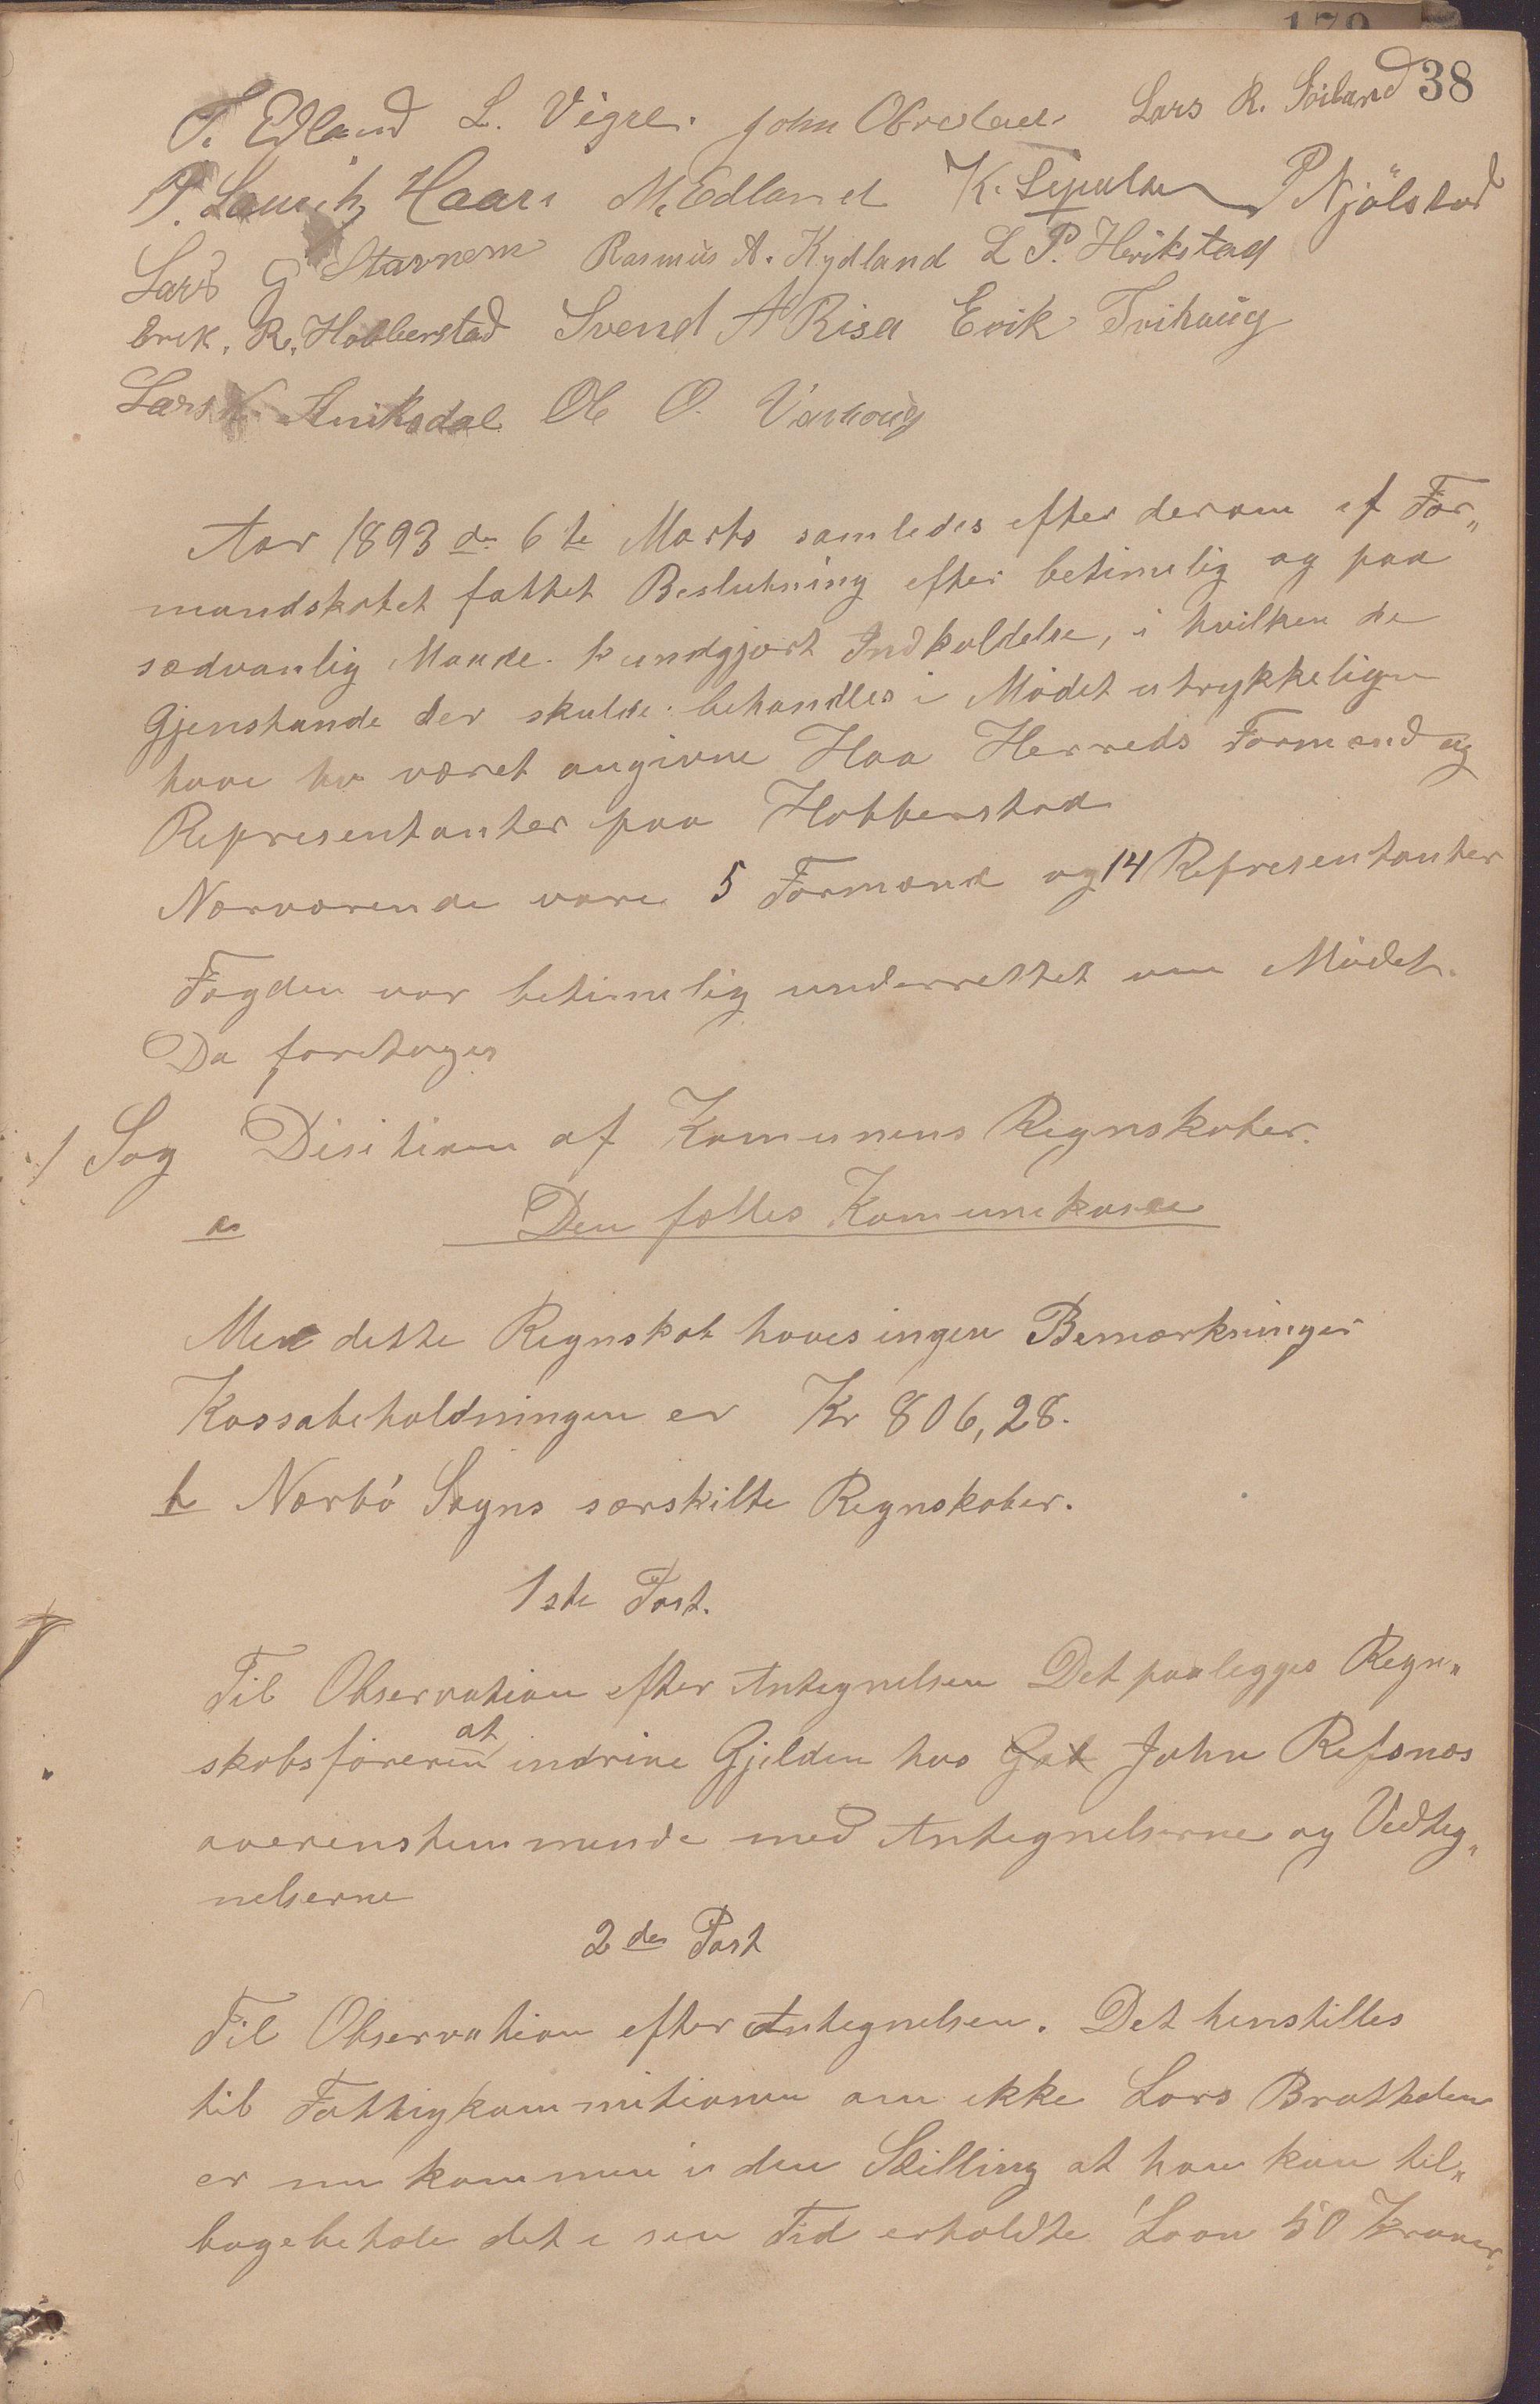 38
T. Edland L. Vigre. John Obrestad. Lars R. Søiland
P. Lauritz Haar. M. Edland K. P. Njølstad
Lars G Stavnem Rasmus A. Kydland L P. Herikstad
Erik. R. Hobberstad Svend A Risa Erik Tvihaug
Lars Aniksdal Ole O. Varhoug
Aar 1893 dn 6te Marts samledes efter derom af For„
mandskabet fattet Beslutning efter betimelig og paa
sædvanlig Maade kundgjort Indkaldelse, i hvilken de
Gjenstande der skulde behandles i Mødet utrykkeligen
have været angivne Haa Herreds Formænd og
Representanter paa Hobberstad
Nærværende vare 5 Formænd og 14 Representanter
Fogden var betimelig underrettet om Mødet.
Da foretoges
1 Sag Disition af Komunens Regnskaber.
a Den fælles Komunekasse
Med dette Regnskab haves ingen Bemærkninger
Kassabeholdningen er Kr 806,28.
b Nærbø Sogns særskilte Regnskaber.
1ste Post.
Til Observation efter Antegnelsen Det paalegges Regn„
skabsføreren at indrive Gjelden hos Gab John Refsnes
overenstemmende med Antegnelserne og Vedteg„
nelserne
2den Post
Til Observation efter Antegnelsen. Det henstilles
til Fattigkommitionen om ikke Lars Brattholen
er nu kommen i den Stilling at han kan til„
bagebetale det i sin Tid erholdte Laan 50 Kroner.